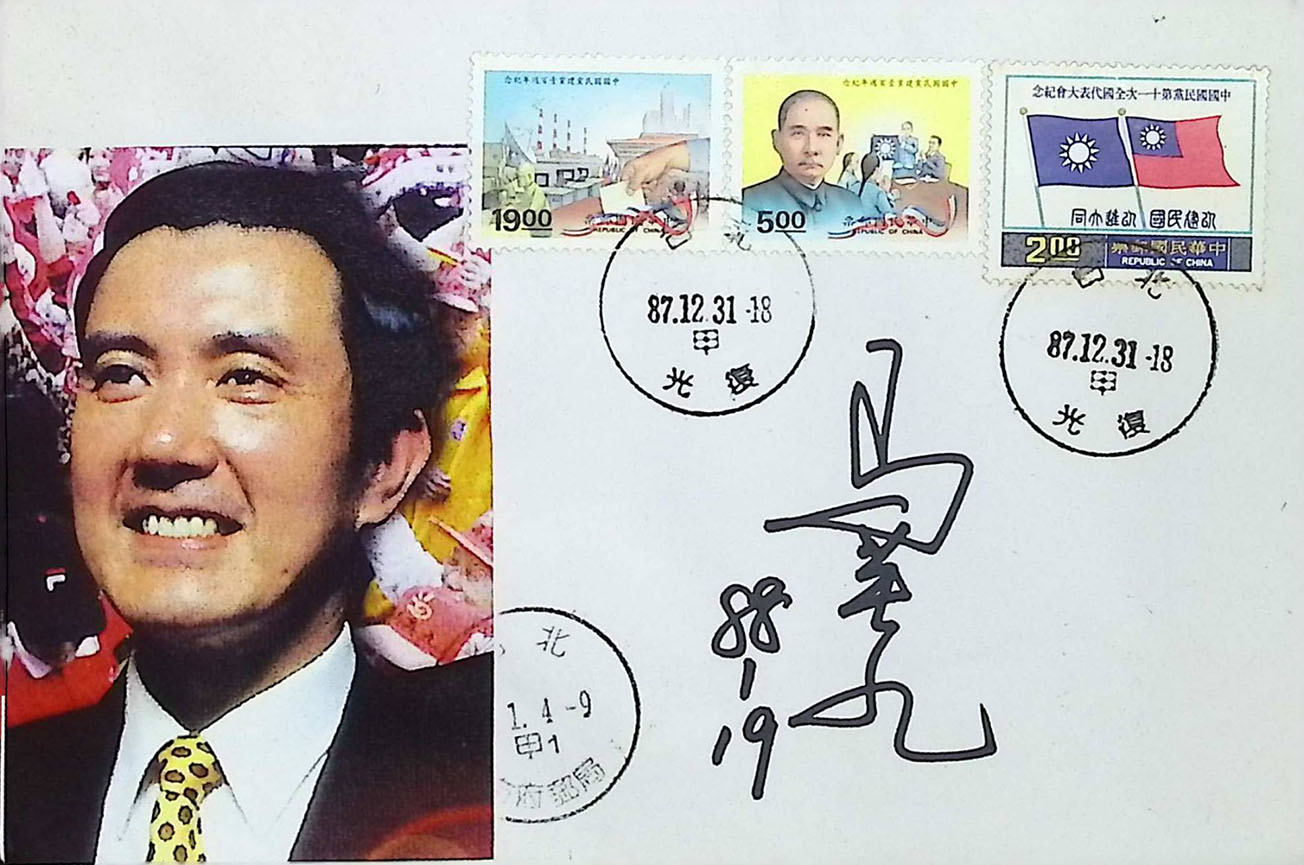 中國國民黨建黨壹百週年紀念
1900
中華民國郵票
REPUBLIC OF CHINA
中國國民黨建黨壹百週年紀念
500
中華民國郵票
REPUBLIC OF CHINA
中國國民黨第十一次全國代表大會紀念
以建民國 以進大同
2.00
中華民國郵票
REPUBLIC OF CHINA
台北
87.12.31-18
甲
光復
台北
87.12.31-18
甲
光復
馬英九
88
1
19
北
1.4-9
甲1
府郵局